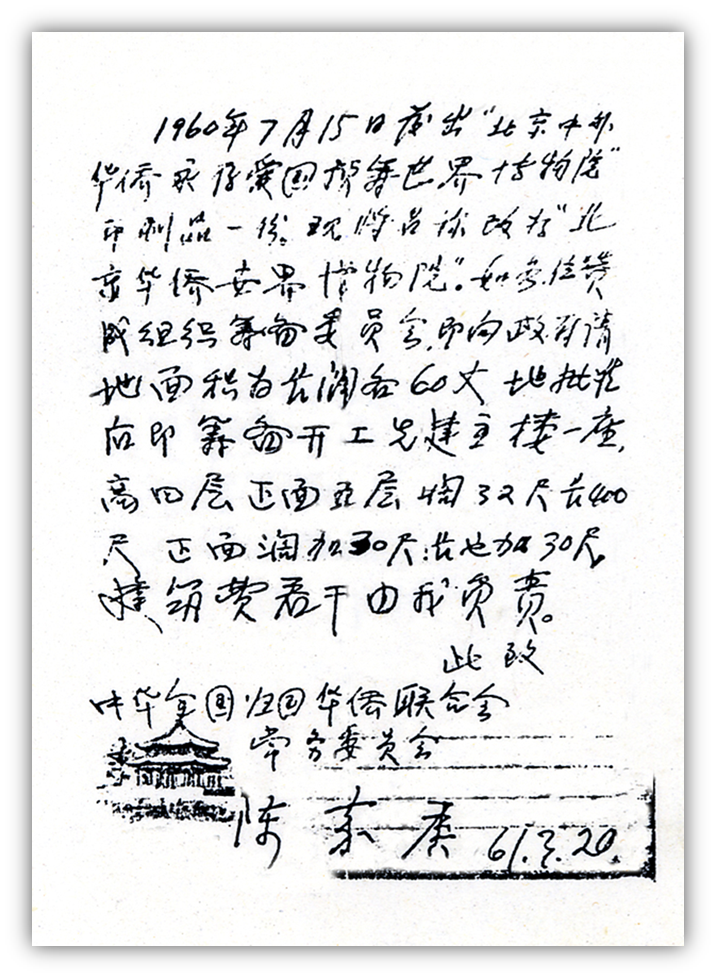 1960年7月15日荐出"北京中外
华侨永存爱国警筹世界博物院"
印刷品一份，现将名称改为"北
京华侨世界博物院"。如希佳赞
成组织筹备委员会，即向政府请
地面积为长阔各60丈 地批准
后即筹备开工先建主楼一座，
高四层正面五层 阔32尺长400
尺 正面阔加30尺，长也加30尺，
建筑费若干由我负责。
此致
中华全国归国华侨联合会
常务委员会
陈 庚 61.3.20.